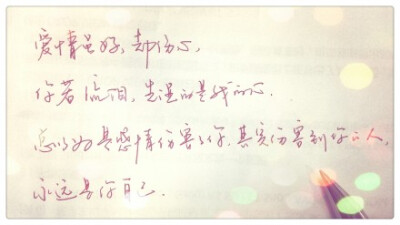 爱情虽好,却伤心,
你若流泪,先湿的是我的心.
总以为是感情伤害了你,其实伤害到你的人,
永远是你自己.